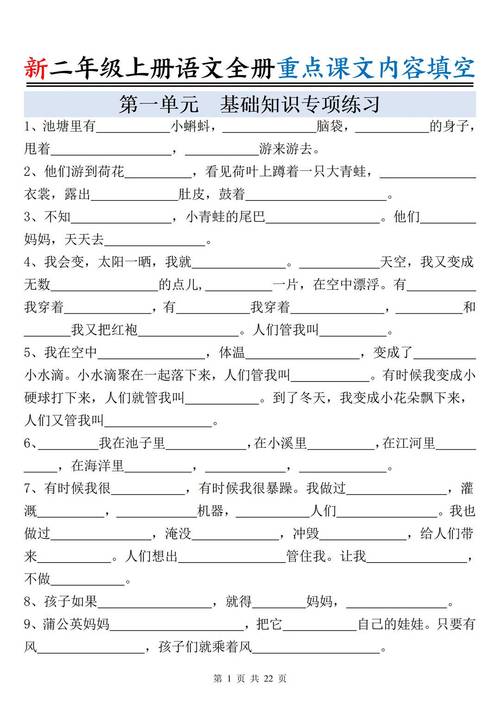 新二年级上册语文全册重点课文内容填空
第一单元 基础知识专项练习
1、池塘里有__________小蝌蚪，____________脑袋，___________的身子，
甩着______________，______________游来游去。
2、他们游到荷花__________，看见荷叶上蹲着一只大青蛙，____________
衣裳，露出____________肚皮，鼓着__________________。
3、不知______________，小青蛙的尾巴______________。他们________
妈妈，天天去______________。
4、我会变，太阳一晒，我就__________。____________天空，我又变成
无数______________的点儿，__________一片，在空中漂浮。有________
我穿着____________，有__________我穿着______________，________和
_______我又把红袍____________。人们管我叫__________。
5、我在空中______________，体温______________，变成了_________
小水滴。小水滴聚在一起落下来，人们管我叫_________。有时候我变成小
硬球打下来，人们就管我叫_________。到了冬天，我变成小花朵飘下来，
人们又管我叫______________。
6、________我在池子里__________，在小溪里__________，在江河里____
_____，在海洋里__________，__________。
7、有时候我很__________，有时候我很暴躁。我做过______________，灌
溉__________，____________机器，__________人们____________。我也
做过____________，淹没__________，冲毁____________，给人们带
来__________。人们想出______________管住我。让我______________，
不做______________。
8、孩子如果______________，就得________妈妈，________________。
9、蒲公英妈妈______________，把它__________自己的娃娃。只要有
风______________，孩子们就乘着风______________。
第 1 页 共 22 页